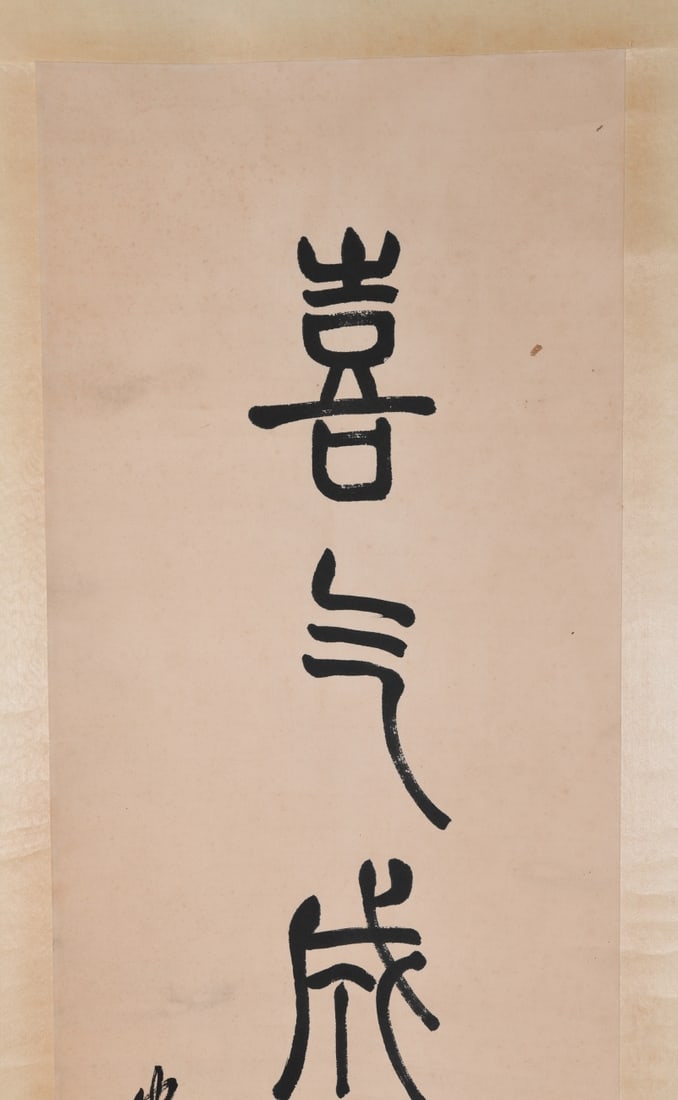 喜气成